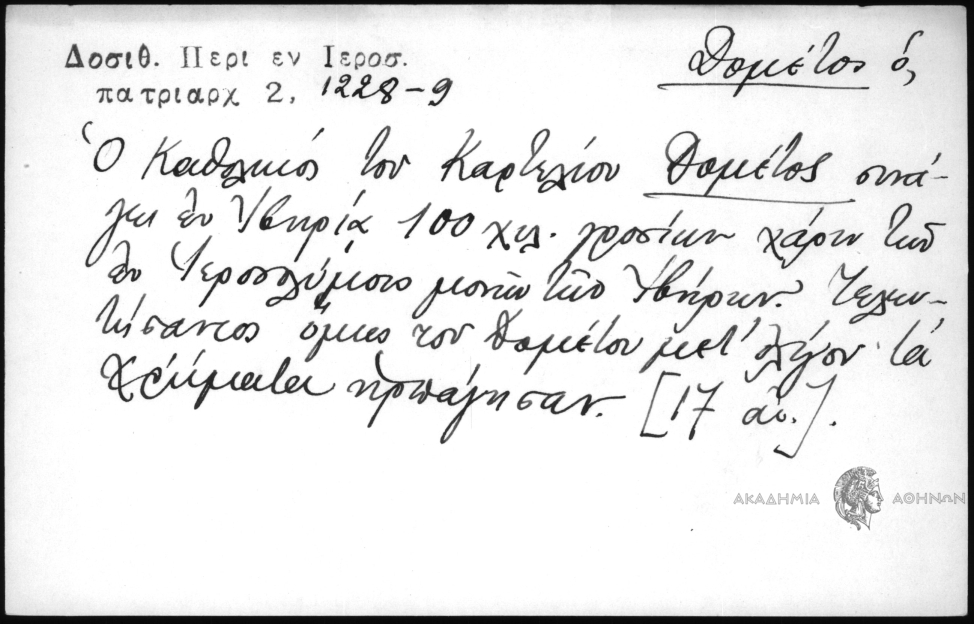 Δοσιθ. Περι εν Ιεροσ.
πατριαρχ 2, 1228-9
Δομέτιος ὁ,
Ὁ Καθολικός τοῦ Καρτελίου Δομέτιος συνά-
γει ἐν Ἰβηρίᾳ 100 χιλ. γροσίων χάριν τῶν
ἐν Ἱεροσολύμοις μονῶν τῶν Ἰβήρων. Τελευ-
τήσαντος ὅμως τοῦ Δομετίου μετ' ὀλίγον τά
χρήματα ἡρπάγησαν. [17 αἰ.].
ΑΚΑΔΗΜΙΑ ΑΘΗΝΩΝ